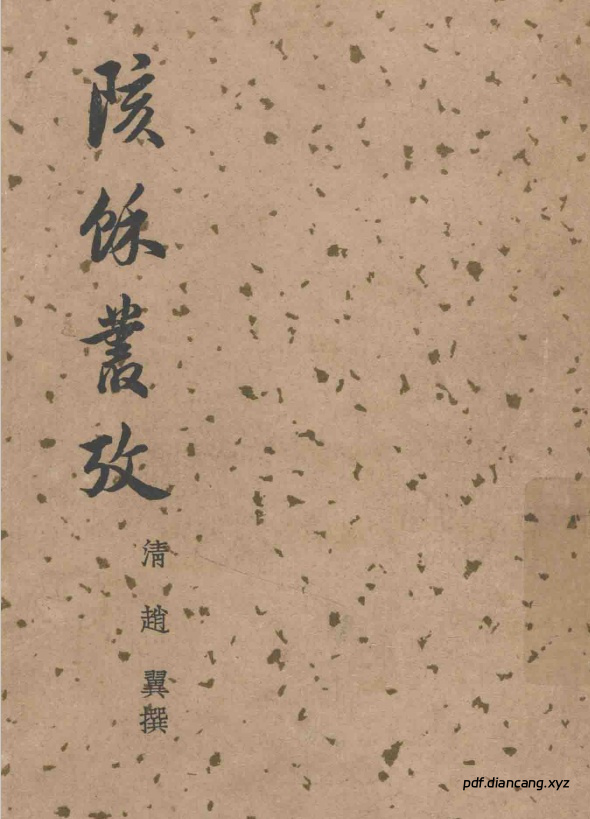 陔餘叢攷
清 趙 翼 撰
pdf.diancang.xyz